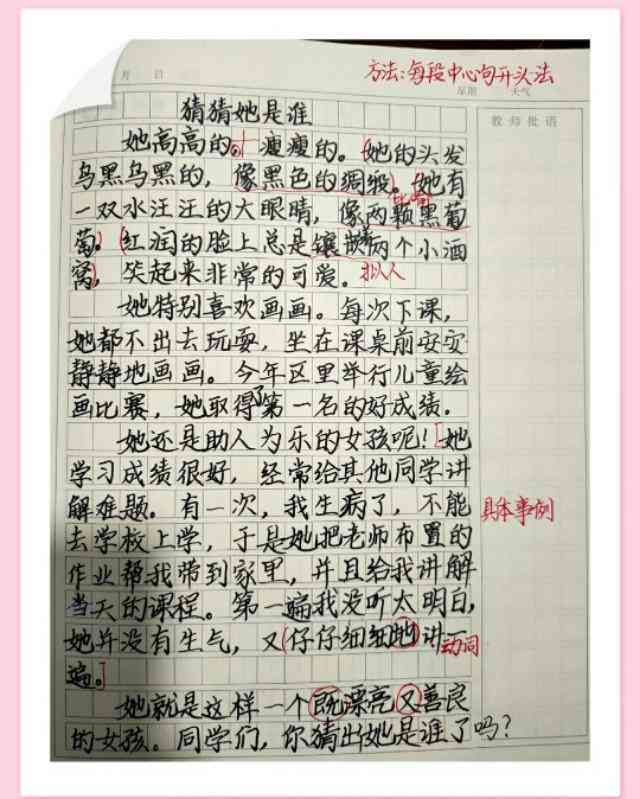 方法:每段中心句开头法
月 日 星期 天气
教师批语
猜猜她是谁
她高高的。瘦瘦的。她的头发
乌黑乌黑的,像黑色的绸缎。她有
比喻
一双水汪汪的大眼睛,像两颗黑葡
萄。红润的脸上总是镶嵌着两个小酒
窝,笑起来非常的可爱。拟人
她特别喜欢画画。每次下课,
她都不出去玩耍,坐在课桌前安安
静静地画画。今年区里举行儿童绘
画比赛,她取得了第一名的好成绩.
她还是助人为乐的女孩呢!她
学习成绩很好,经常给其他同学讲
解难题。有一次,我生病了,不能
具体事例
去学校上学,于是她把老师布置的
作业帮我带到家里,并且给我讲解
当天的课程。第一遍我没听太明白,
她并没有生气,又仔仔细细地讲一
动词
遍。
她就是这样一个既漂亮又善良
的女孩。同学们,你猜出她是谁了吗?